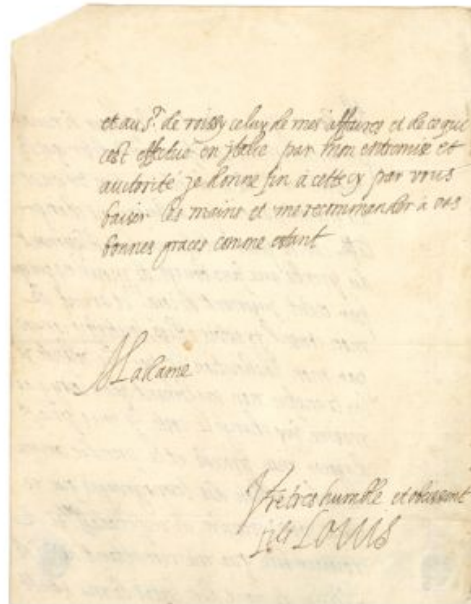 et au Sr. de roissy celuy de mes affaires et de ce qui
cest effectué en ytalie par mon entremise et
autorité je donne fin à cette cy par vous
baiser les mains et me recommander à vos
bonnes graces comme estant
Madame
Vre tres humble et obeissent
filz LOUIS